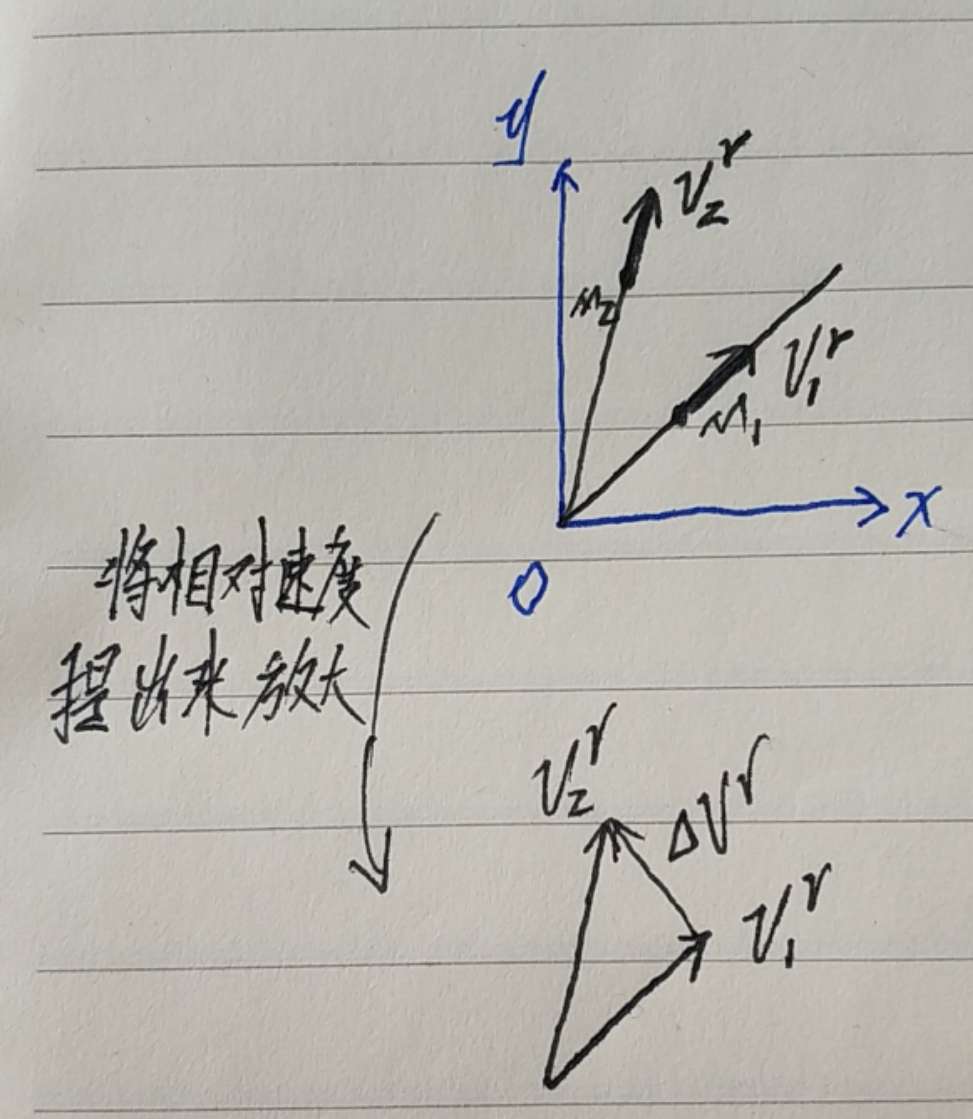 y
V₂ʳ
M₂
V₁ʳ
M₁
x
O
将相对速度
提出来放大
V₂ʳ
ΔVʳ
V₁ʳ